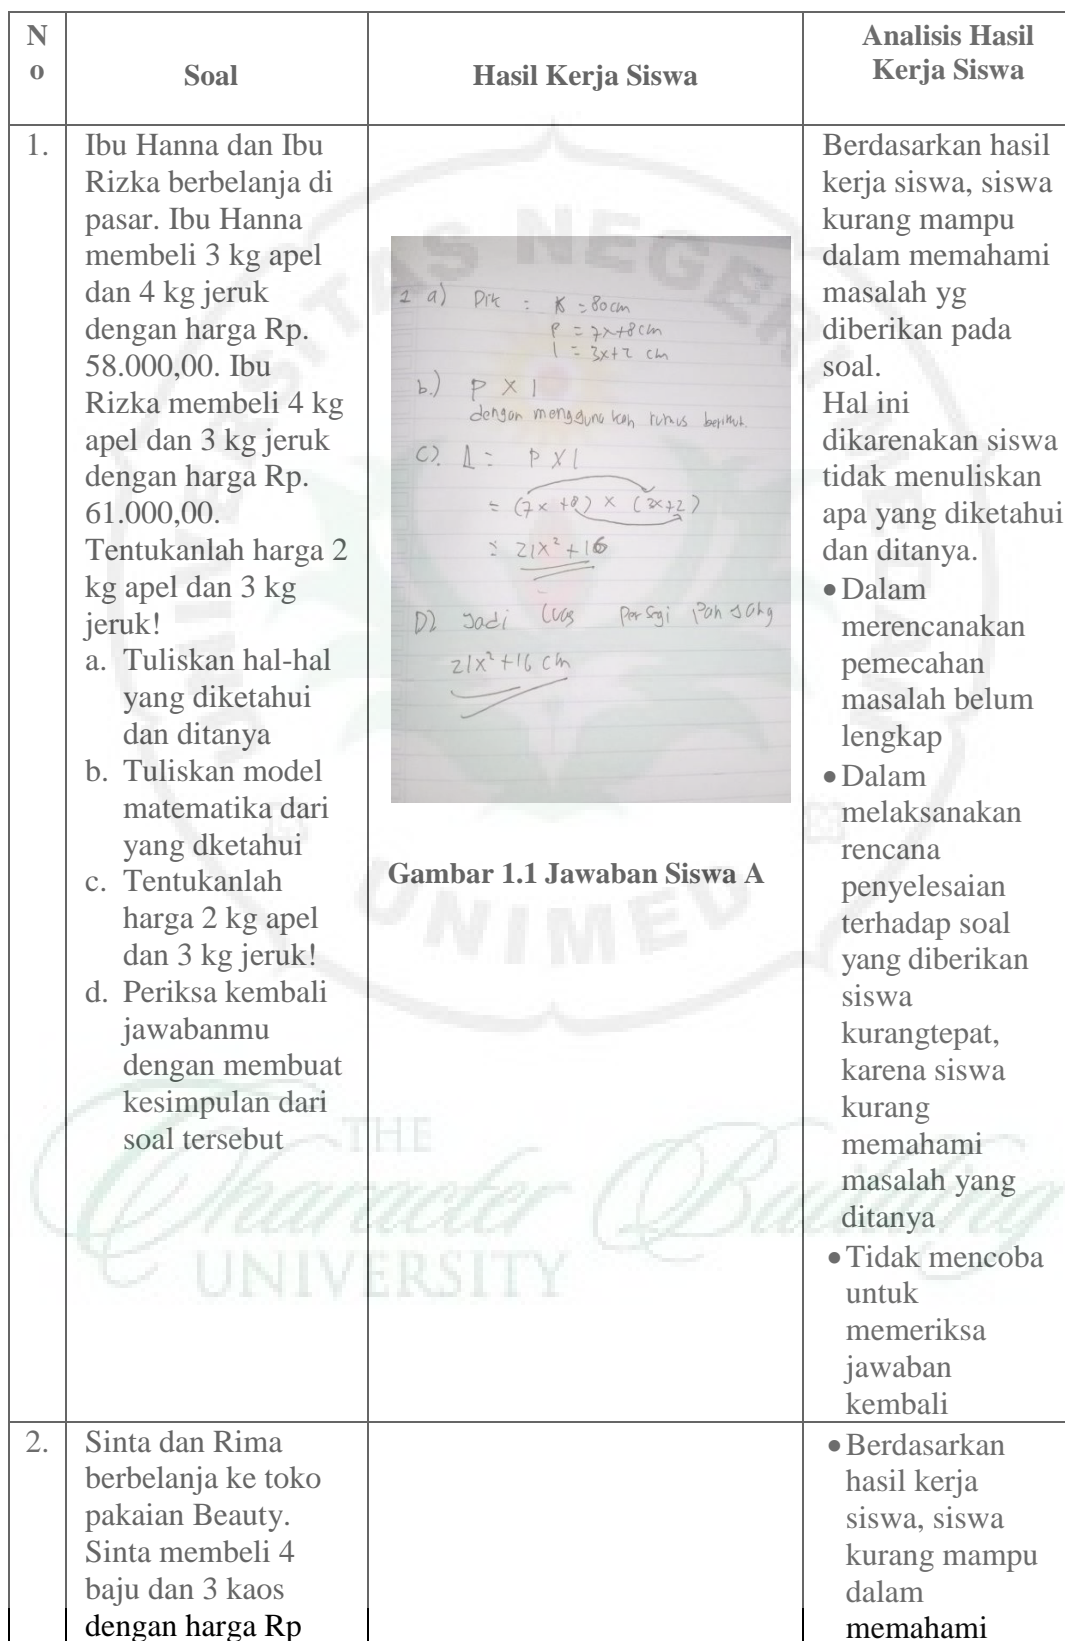 N
o
Soal
Hasil Kerja Siswa
Analisis Hasil
Kerja Siswa
1.
Ibu Hanna dan Ibu
Rizka berbelanja di
pasar. Ibu Hanna
membeli 3 kg apel
dan 4 kg jeruk
dengan harga Rp.
58.000,00. Ibu
Rizka membeli 4 kg
apel dan 3 kg jeruk
dengan harga Rp.
61.000,00.
Tentukanlah harga 2
kg apel dan 3 kg
jeruk!
a. Tuliskan hal-hal
yang diketahui
dan ditanya
b. Tuliskan model
matematika dari
yang dketahui
c. Tentukanlah
harga 2 kg apel
dan 3 kg jeruk!
d. Periksa kembali
jawabanmu
dengan membuat
kesimpulan dari
soal tersebut
1 a) Dik : K = 80 cm
P = 7x+8 cm
l = 3x+2 cm
b.) P X l
dengan menggunakan rumus berikut.
C). L = P X l
= (7x +8) × (3x+2)
= 21x² + 16
D) Jadi luas persegi panjang
21x² +16 cm
Gambar 1.1 Jawaban Siswa A
Berdasarkan hasil
kerja siswa, siswa
kurang mampu
dalam memahami
masalah yg
diberikan pada
soal.
Hal ini
dikarenakan siswa
tidak menuliskan
apa yang diketahui
dan ditanya.
• Dalam
merencanakan
pemecahan
masalah belum
lengkap
• Dalam
melaksanakan
rencana
penyelesaian
terhadap soal
yang diberikan
siswa
kurangtepat,
karena siswa
kurang
memahami
masalah yang
ditanya
• Tidak mencoba
untuk
memeriksa
jawaban
kembali
2.
Sinta dan Rima
berbelanja ke toko
pakaian Beauty.
Sinta membeli 4
baju dan 3 kaos
dengan harga Rp
• Berdasarkan
hasil kerja
siswa, siswa
kurang mampu
dalam
memahami
UNIVERSITAS NEGERI MEDAN
UNIMED
THE
Character Building
UNIVERSITY